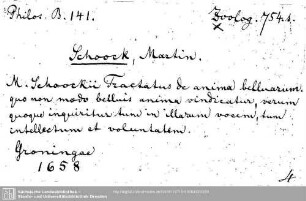 Philos. B. 141.
Zoolog. 754 h.
Schoock, Martin.
M. Schoockii Tractatus de anima belluarum.
quo non modo belluis anima vindicatur, verum
quoque inquiritur tum in illarum vocem, tum
intellectum et voluntatem.
Groningae
1658
4
Sächsische Landesbibliothek -
Staats- und Universitätsbibliothek Dresden